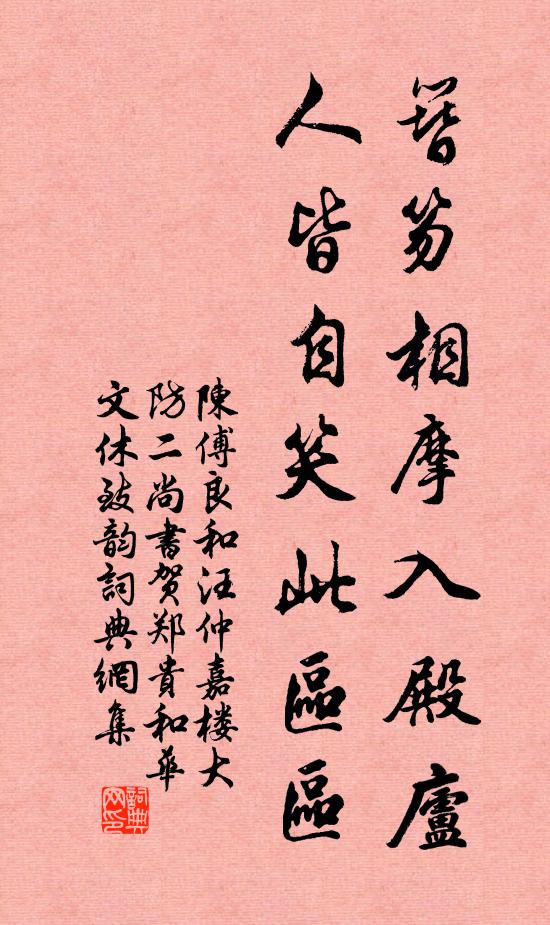 簪笏相摩入殿廬
人皆自笑此區區
陳傅良和汪仲嘉楼大
防二尚書贺郑貴和華
文休致韵詞典網集
詞典网印